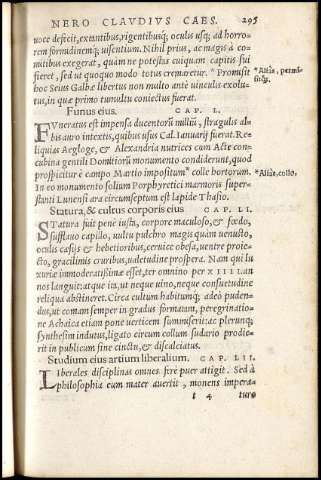 NERO CLAVDIVS CAES. 295
uoce deficit, extantibus, rigentibusq; oculis usq; ad horro-
rem formidinemq; uisentium. Nihil prius, ac magis à co-
mitibus exegerat, quam ne potestas cuiquam capitis sui
fieret, sed ut quoquo modo totus cremaretur. * Promisit
hoc Seius Galbæ libertus non multo ante uinculis exolu-
tus, in quæ primo tumultu coniectus fuerat.
* Aliâs, permi-
sitq;.
Funus eius. CAP. L.
FVneratus est impensa ducentorũ milliũ, stragulis al-
bis auro intextis, quibus usus Cal. Ianuarij fuerat. Re-
liquias Aegloge, & Alexandria nutrices cum Acte con-
cubina gentili Domitiorũ monumento condiderunt, quod
prospicitur è campo Martio impositum * colle hortorum.
* Aliâs, collo,
In eo monumento solium Porphyretici marmoris super-
stanti Lunensi ara circumseptum est lapide Thasio.
Statura, & cultus corporis eius CAP. LI.
STatura fuit penè iusta, corpore maculoso, & fœdo,
sufflauo capillo, uultu pulchro magis quàm uenusto,
oculis cæsijs & hebetioribus, ceruice obesa, uentre proie-
cto, gracilimis cruribus, ualetudine prospera. Nam qui lu-
xuriæ immoderatissimæ esset, ter omnino per XIIII. an-
nos languit: atque ita, ut neque uino, neque consuetudine
reliqua abstineret. Circa cultum habitumq; adeò puden-
dus, ut comam semper in gradus formatam, peregrinatio-
ne Achaica etiam pone uerticem summiserit: ac plerunq;
synthesim indutus, ligato circum collum sudario prodie-
rit in publicum sine cinctu, & discalciatus.
Studium eius artium liberalium. CAP. LII.
LIberales disciplinas omnes ferè puer attigit. Sed à
philosophia eum mater auertit, monens impera-
t 4 turo